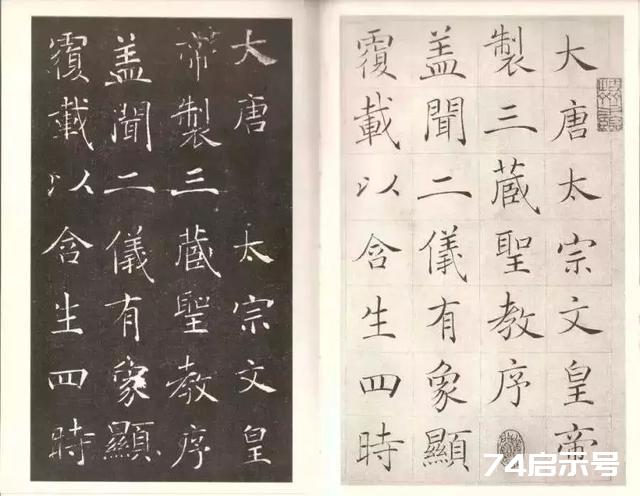 大唐太宗文皇帝
製三蔵聖教序
盖聞二儀有象顯
覆載以含生四時
大唐 太宗文皇
帝製三蔵聖教序
盖聞二儀有象顯
覆載以含生四時
74启示号